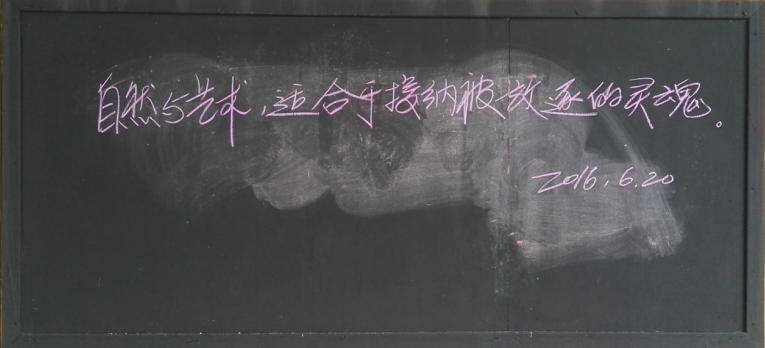 自然与艺术,适合于接纳被放逐的灵魂。
2016.6.20